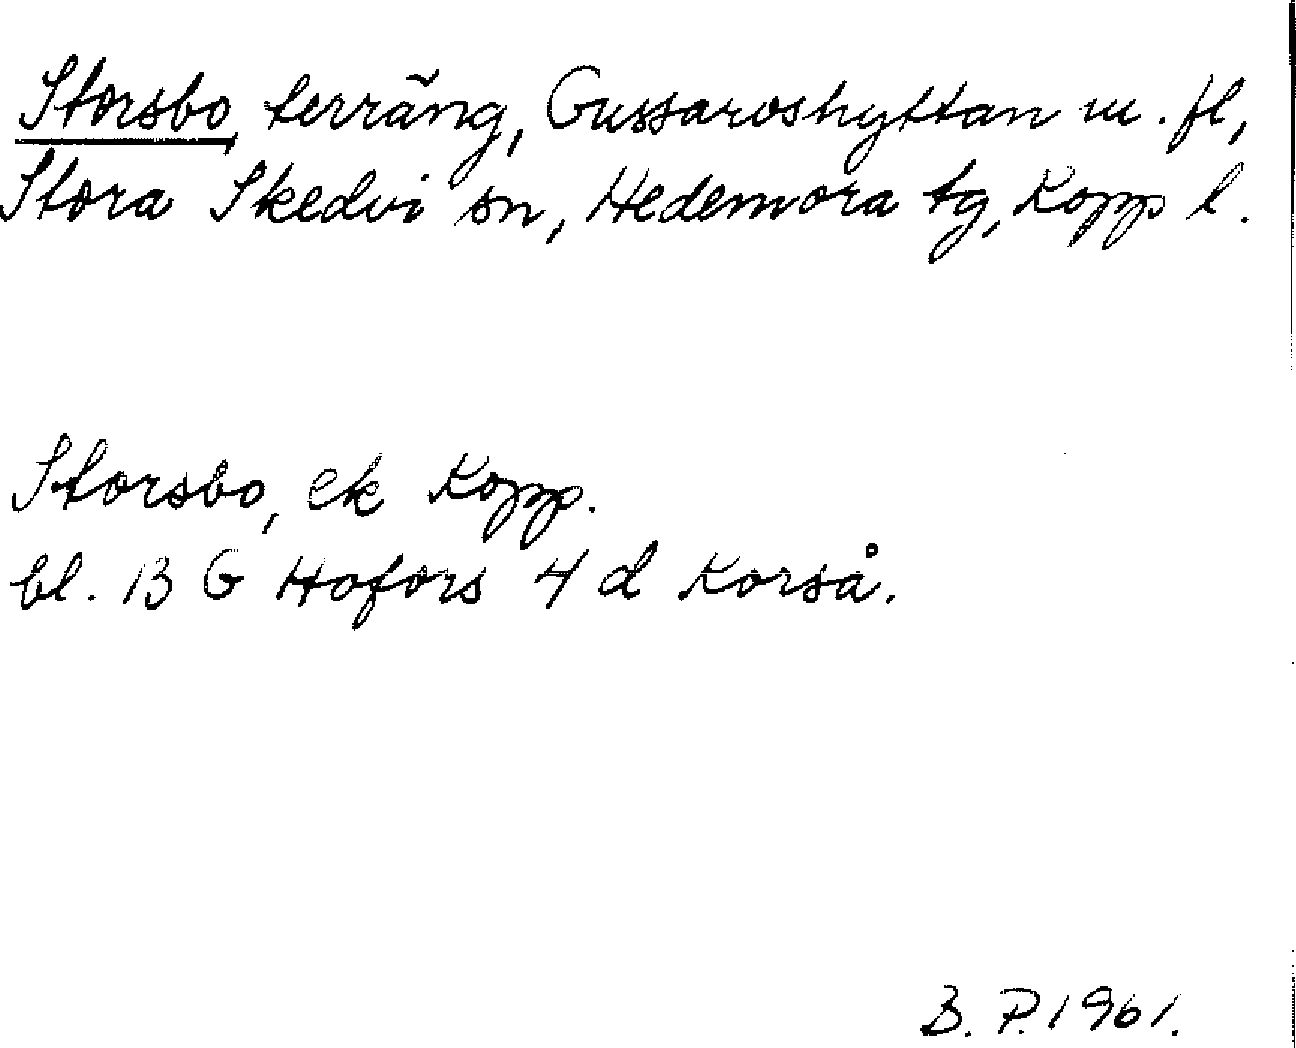 Storsbo, terräng, Gussarvshyttan m. fl,
Stora Skedvi sn, Hedemora tg, Kopp l.
Storsbo, ek Kopp.
bl. 13 G Hofors 4 d Korså.
B. P. 1961.